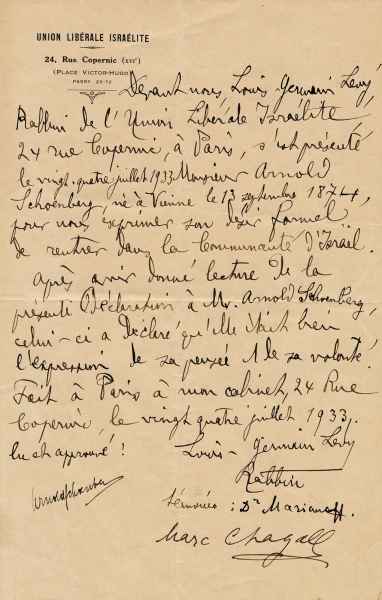 UNION LIBÉRALE ISRAÉLITE
24, Rue Copernic (XVIe)
(PLACE VICTOR-HUGO)
PASSY 23-72
Devant nous, Louis Germain Levy,
Rabbin de l'Union Libérale Israélite,
24 rue Copernic, à Paris, s'est présenté
le vingt-quatre juillet 1933 Monsieur Arnold
Schoenberg, né à Vienne le 13 septembre 1874,
pour nous exprimer son désir formel
de rentrer dans la Communauté d'Israël.
Après avoir donné lecture de la
présente Déclaration à Mr. Arnold Schoenberg,
celui-ci a déclaré qu'elle était bien
l'expression de sa pensée et de sa volonté.
Fait à Paris à mon cabinet, 24 Rue
Copernic, le vingt quatre juillet 1933.
Lu et approuvé!
Louis-Germain Levy
Rabbin
Arnold Schoenberg
témoins : Dr Marianoff.
Marc Chagall